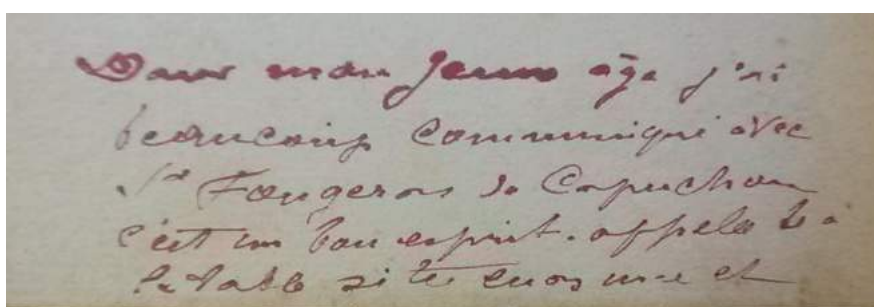 Dans mon jeune âge j'ai
beaucoup communiqué avec
St Fougeras de Capuchon
c'est un bon esprit. appela le a
la table si tu et